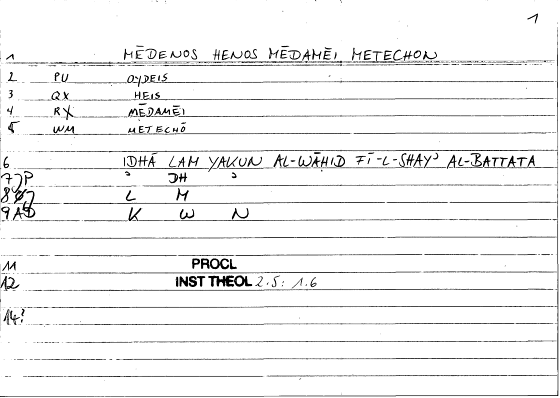 1
1 MĒDENOS HENOS MĒDAMĒI METECHON
2 PU OYDEIS
3 QX HEIS
4 RX MĒDAMĒI
5 WM METECHŌ
6 IDHĀ LAM YAKUN AL-WĀHID FĪ-L-SHAYʾ AL-BATTATA
7 JP ʾ DH ʾ
8 L M
9 AD K W N
11 PROCL
12 INST THEOL 2.5: 1.6
14?